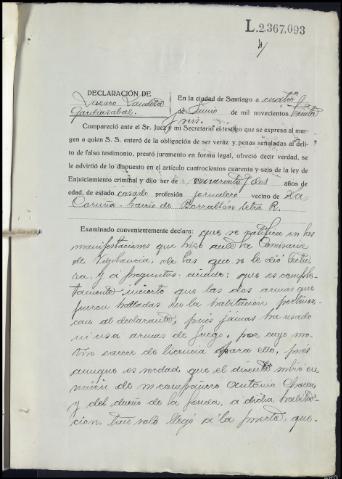 L.2,367,093
DECLARACIÓN DE
En la ciudad de Santiago a cuatro
de Junio de mil novecientos treinta
y seis.
Compareció ante el Sr. Juez y mi Secretario el testigo que se expresa al mar-
gen a quien S. S. enteró de la obligación de ser veráz y penas señaladas al deli-
to de falso testimonio, prestó juramento en forma legal, ofreció decir verdad, se
le advirtió de lo dispuesto en el artículo cuatrocientos cuarenta y seis de la ley de
Enjuiciamiento criminal y dijo ser de cuarenta y dos años de
edad, de estado casado profesión jornalero vecino de La
Coruña barrio de letra R.
Examinado convenientemente declara: que se ratifica en las
manifestaciones que hizo ante la Comisaria
de Vigilancia, de las que se le dió lectu
ra y a preguntas añade: que es comple-
tamente incierto que las dos armas que
fueron halladas en la habitación pertenez-
can al declarante, pues jamas ha usado
ni usa armas de fuego, por cuyo mo-
tivo carece de licencia para ello, pues
aunque es verdad que el dicente subió en
unión de su compañero Antonio
y del dueño de la fonda, a dicha habita-
cion, tan solo llegó a la puerta, que